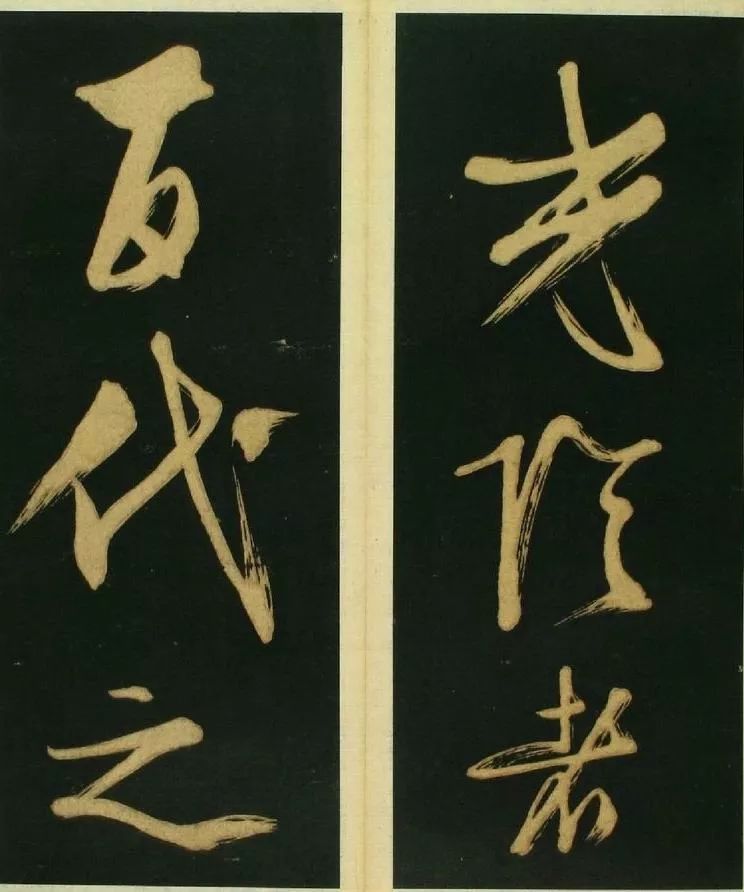 光陰者
百代之